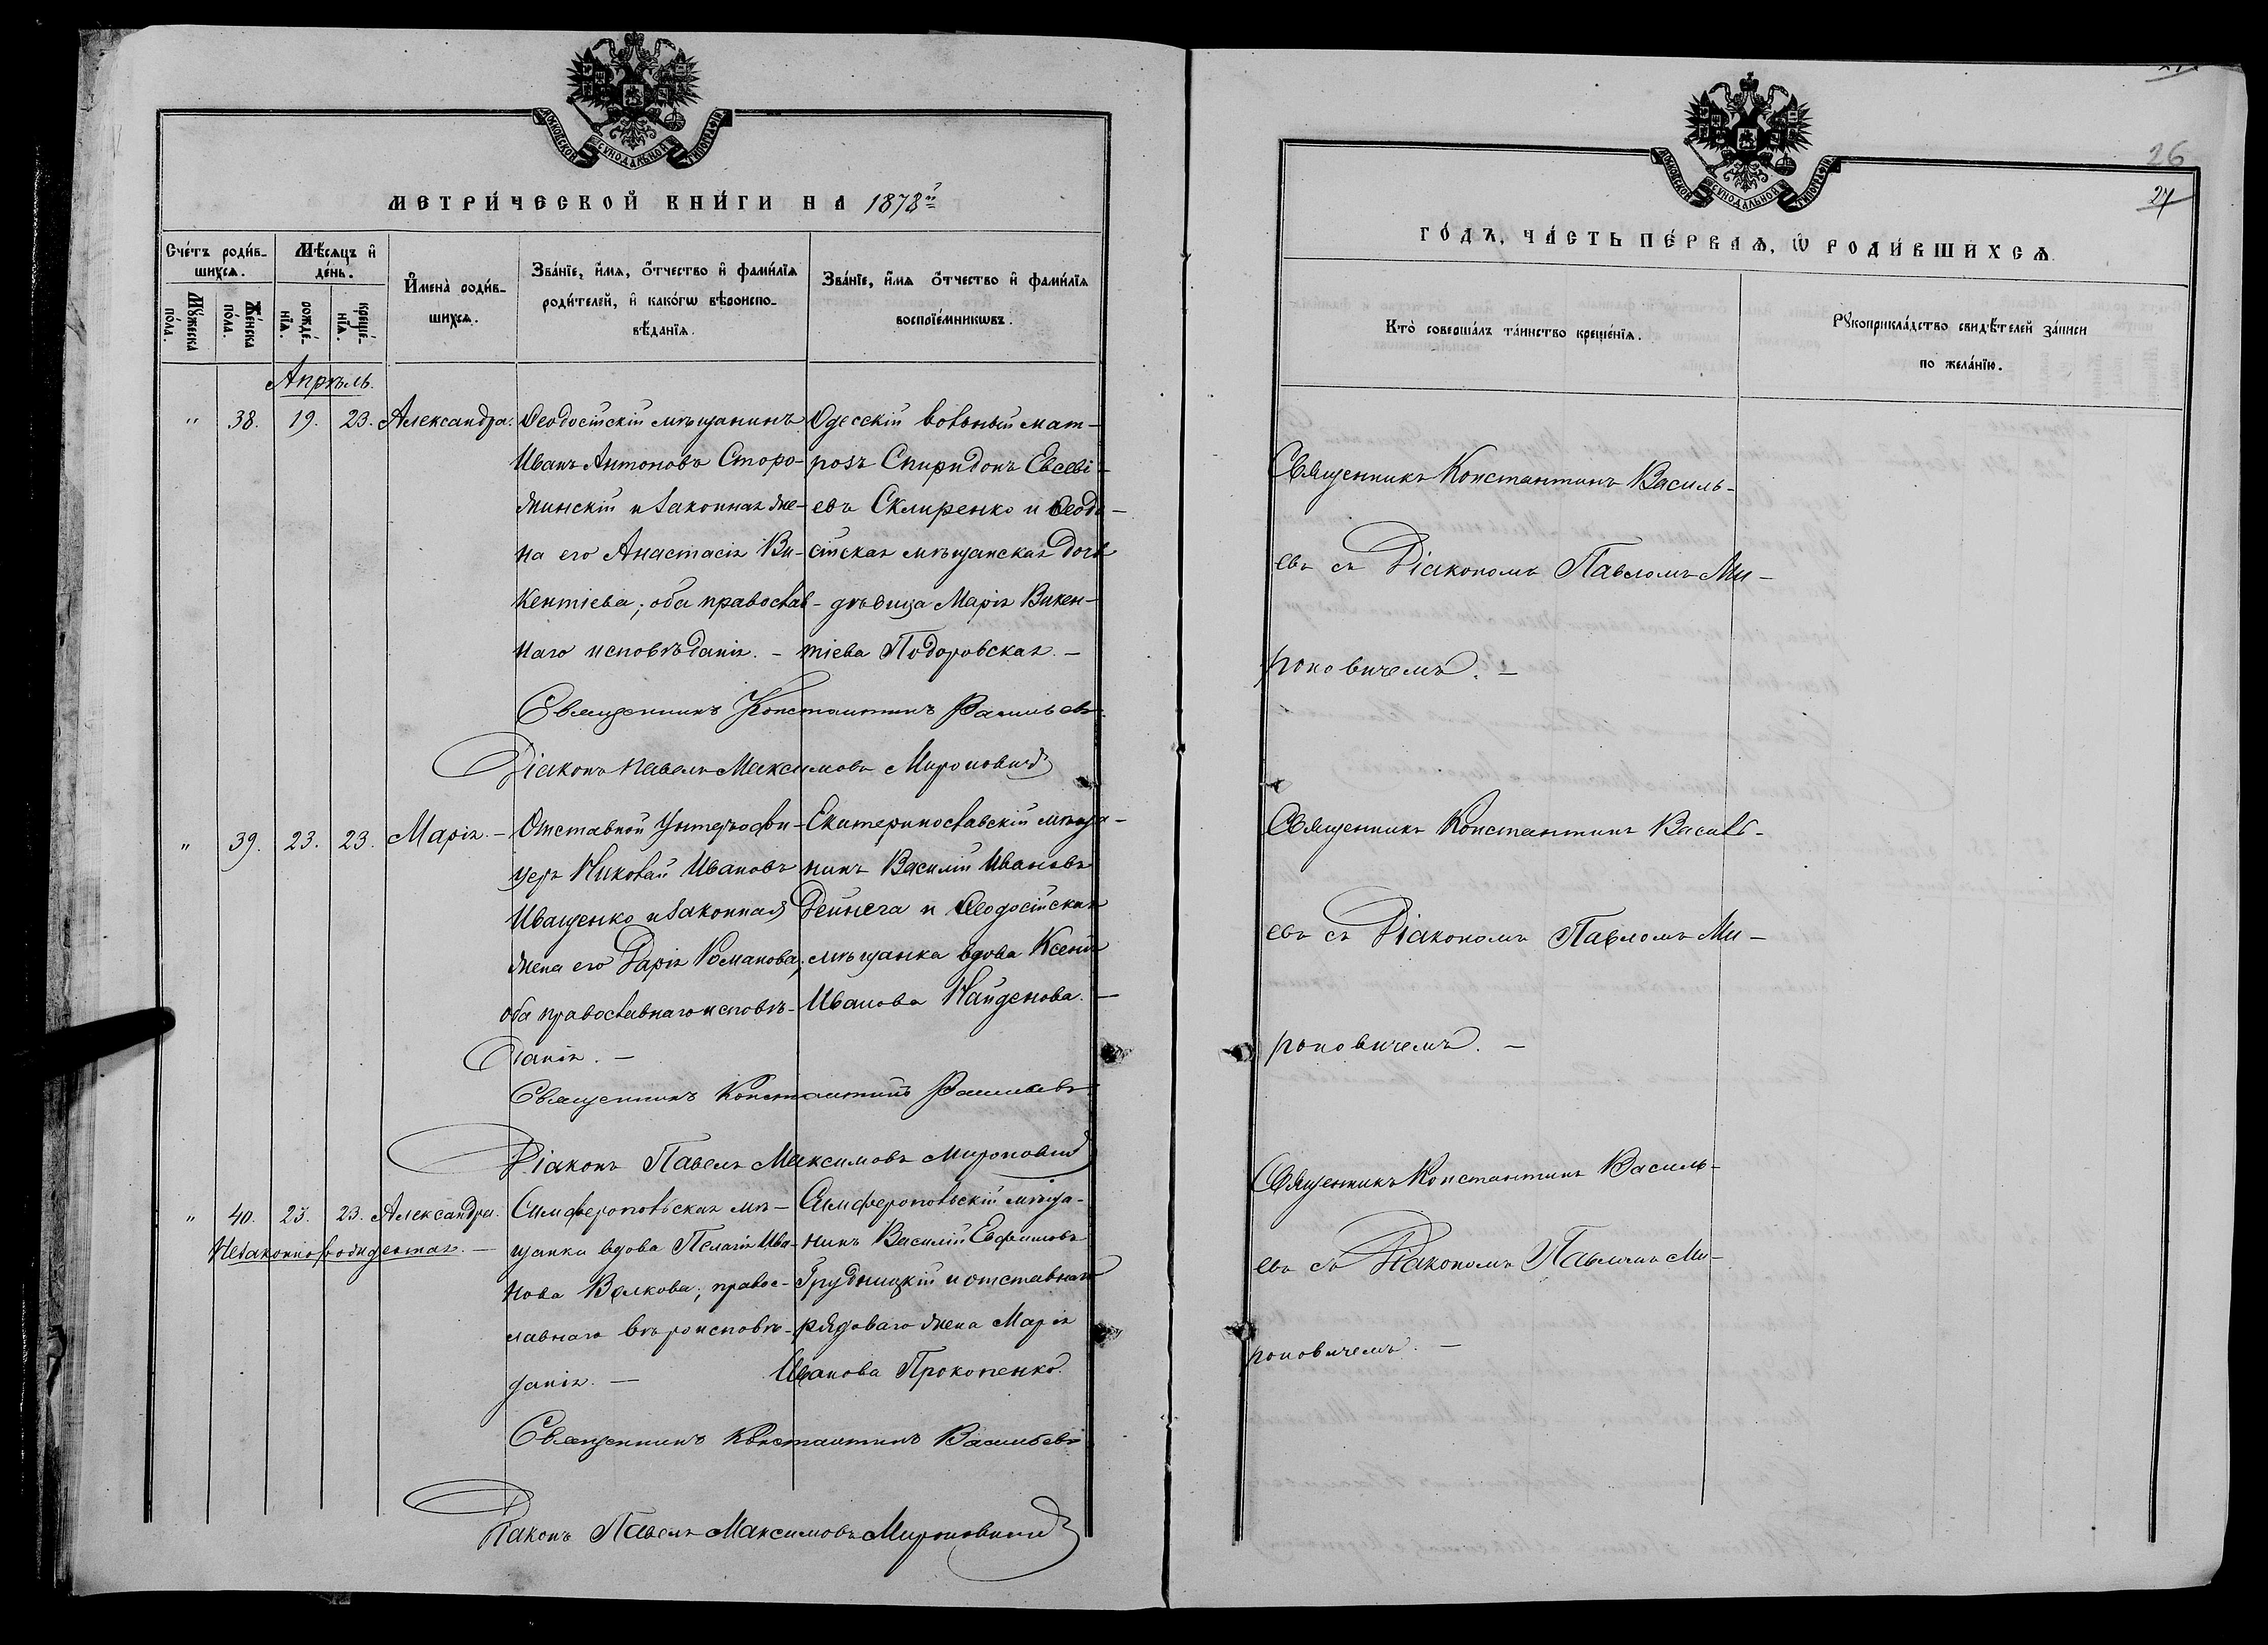 МОСКОВСКОЙ СУНОДАЛЬНОЙ ТИПОГРАФІИ
МЕТРИ́ЧЕСКОЙ КНИ́ГИ НА 1878й
Сче́тъ роди́в-
шихсѧ.
Мѣ́сѧцъ и҆
де́нь.
И҆мена̀ роди́в-
шихсѧ.
Зва́нїе, и҆́мѧ, ѻ҆́тчество и҆ фами́лїѧ
роди́телей, и҆ како́гѡ вѣроиспо-
вѣ́данїѧ.
Зва́нїе, и҆́мѧ ѻ҆́тчество и҆ фами́лїѧ
воспрїе́мникѡвъ.
Мꙋ́жеска
по́ла.
Же́нска
по́ла.
рожде́-
нїѧ.
креще́-
нїѧ.
Апрѣль.
" 38. 19. 23. Александра.
Ѳеодосійскій мѣщанинъ
Иванъ Антоновъ Сторо-
жинскій и законная же-
на его Анастасія Ви-
кентіева; оба православ-
наго исповѣданія. -
Одесскій вольный мат-
розъ Спиридонъ Евсеві-
евъ Склиренко и Ѳеодо-
сійская мѣщанская дочь
дѣвица Марія Викен-
тіева Подоровская. -
Священникъ Константинъ Васильевъ.
Діаконъ Павелъ Максимовъ Мироновичъ
" 39. 23. 23. Марія. -
Отставной Унтеръ-офи-
церъ Николай Ивановъ
Иващенко и законная
жена его Дарія Романова;
оба православнаго исповѣ-
данія. -
Екатеринославскій мѣща-
нинъ Василій Ивановъ
Дейнега и Ѳеодосійская
мѣщанка вдова Ксенія
Иванова Найденова. -
Священникъ Константинъ Васильевъ
Діаконъ Павелъ Максимовъ Мироновичъ
" 40. 23. 23. Александра.
Незаконнорожденная. -
Симферопольская мѣ-
щанка вдова Пелагія Ива-
нова Волкова; правос-
лавнаго вѣроисповѣ-
данія. -
Симферопольскій мѣща-
нинъ Василій Евфимовъ
Грудницкій и отставнаго
рядоваго жена Марія
Иванова Прокопенко.
Священникъ Константинъ Васильевъ
Діаконъ Павелъ Максимовъ Мироновичъ
26
27
МОСКОВСКОЙ СУНОДАЛЬНОЙ ТИПОГРАФІИ
ГО́ДЪ, ЧА́СТЬ ПЕ́РВАѦ, Ѡ҆ РОДИ́ВШИХСѦ.
Кто̀ соверша́лъ та́инство креще́нїѧ.
Рꙋкоприкла́дство свидѣ́телей за́писи
по жела́нїю.
Священникъ Константинъ Василь-
евъ съ Діакономъ Павломъ Ми-
роновичемъ. -
Священникъ Константинъ Василь-
евъ съ Діакономъ Павломъ Ми-
роновичемъ. -
Священникъ Константинъ Василь-
евъ съ Діакономъ Павломъ Ми-
роновичемъ. -